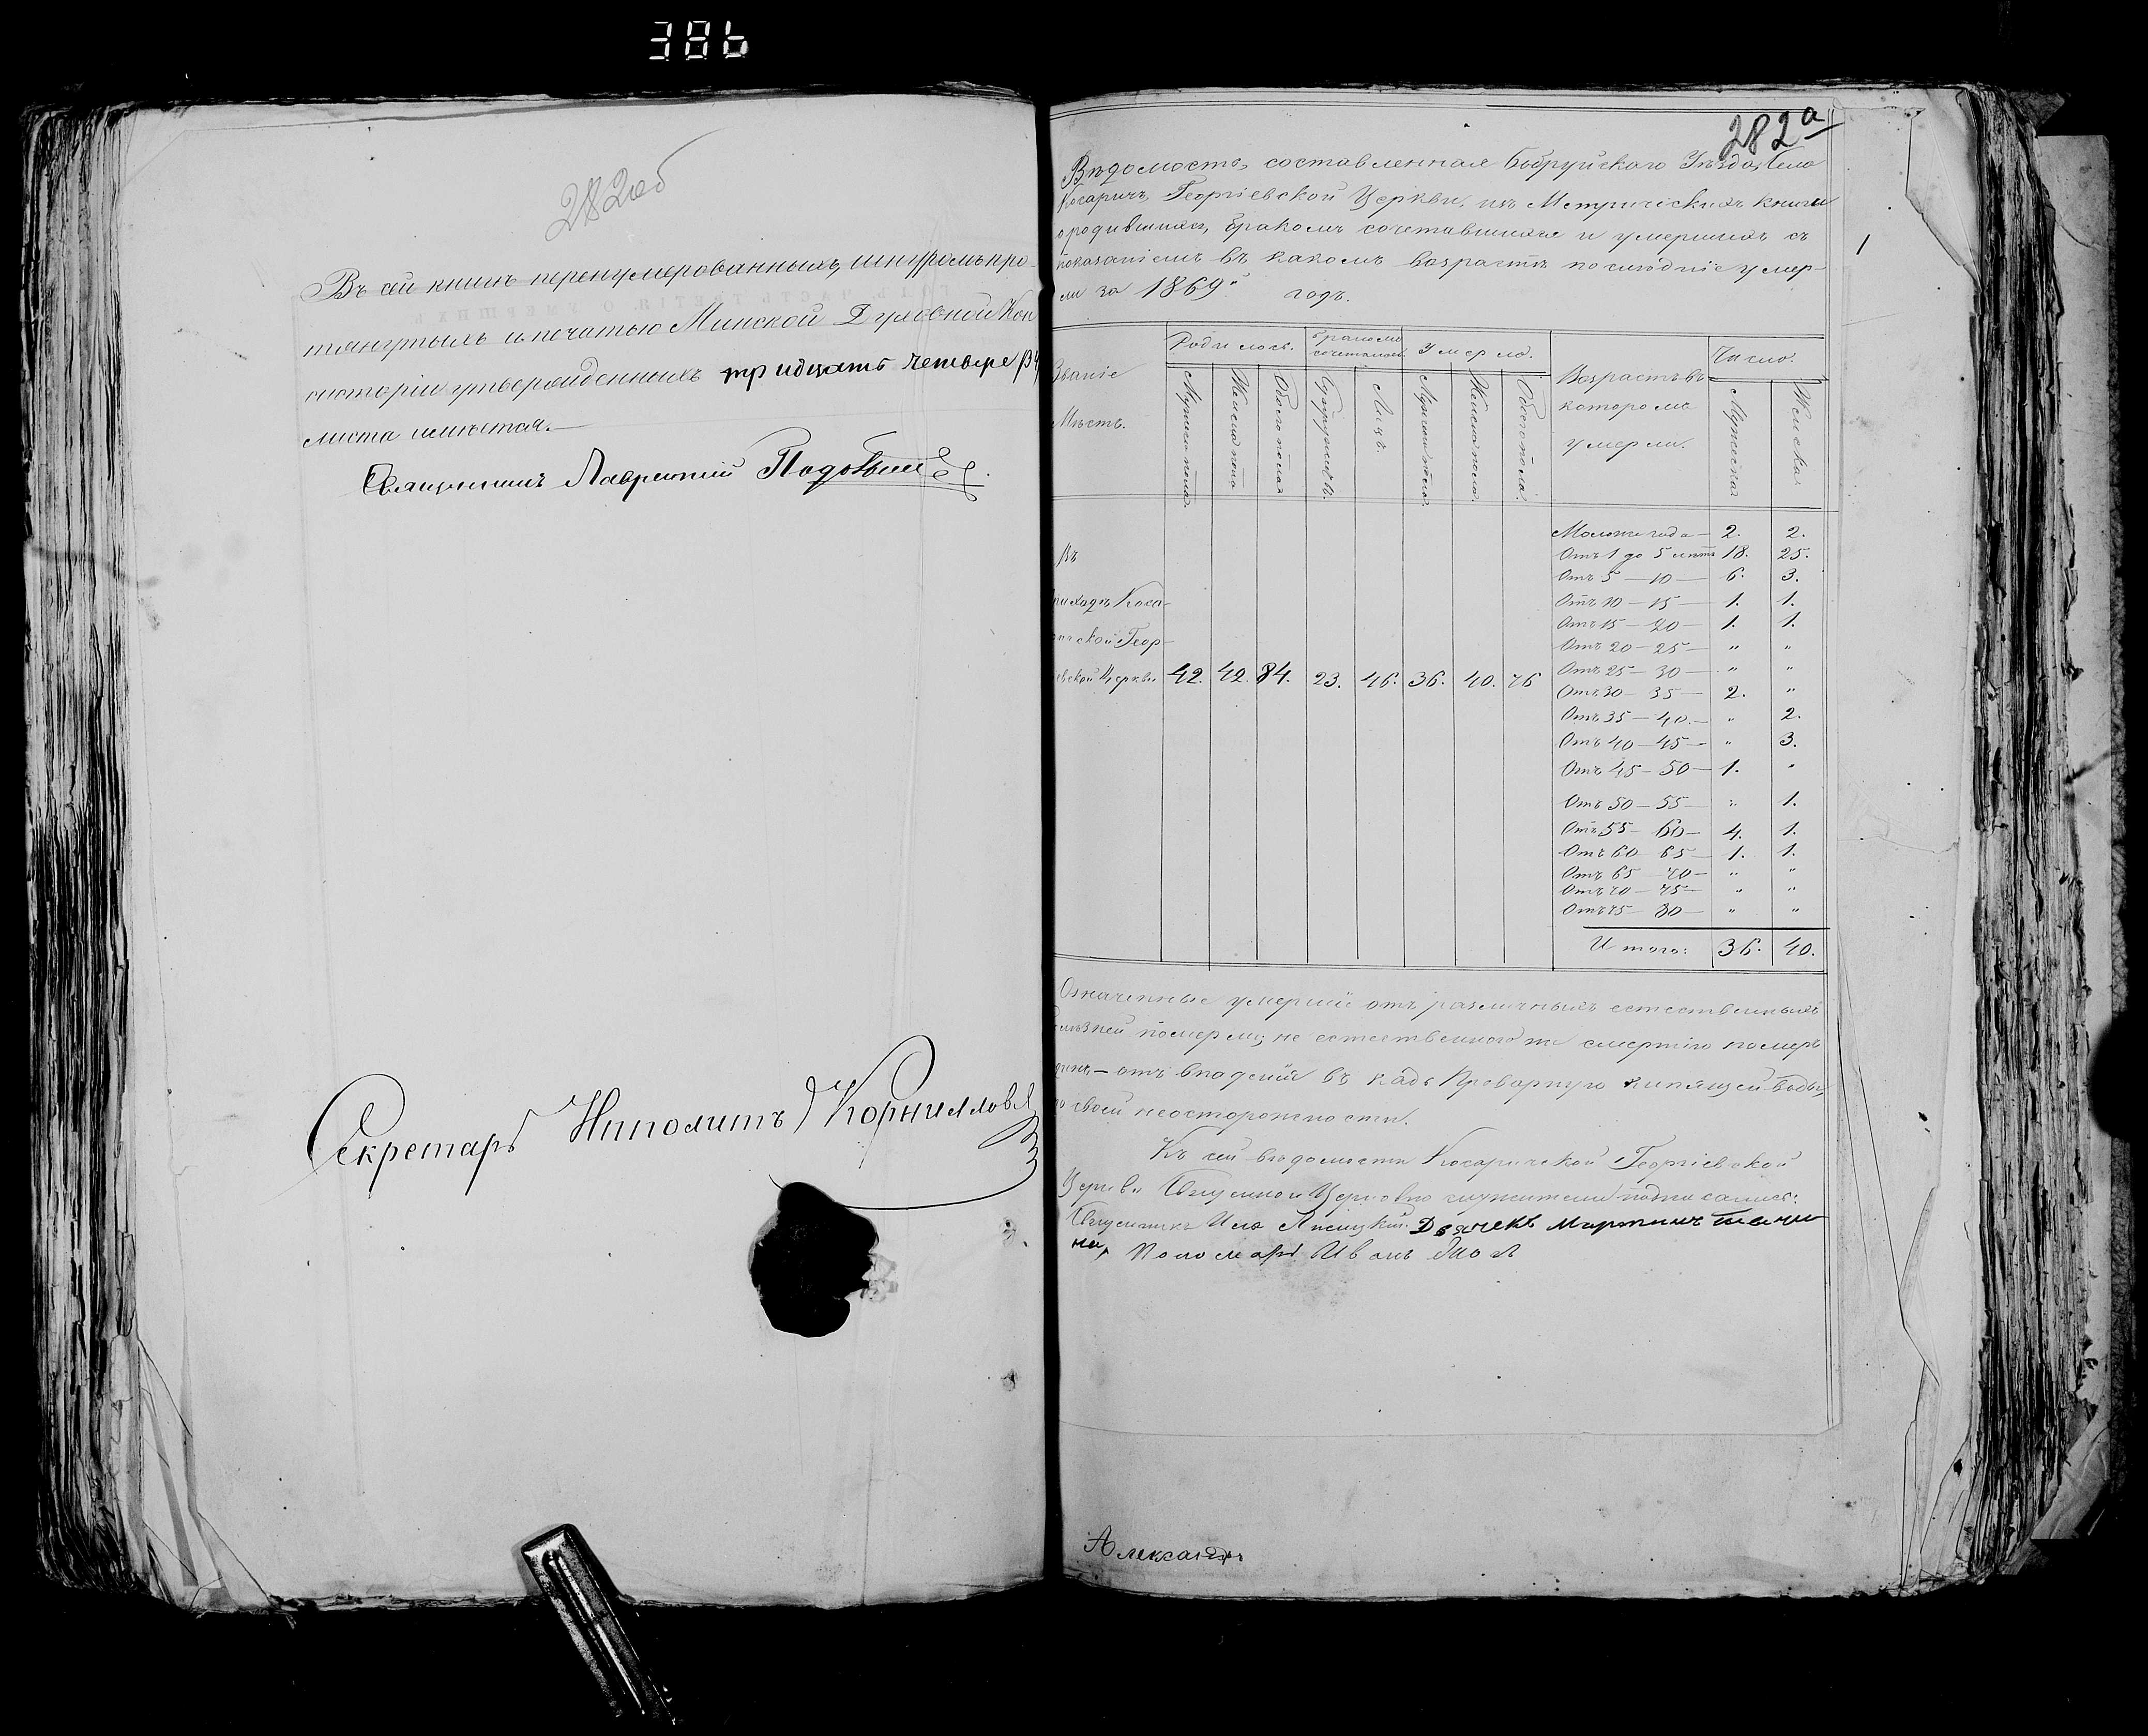 386
282об
Въ сей книгѣ перенумерованныхъ, шнуромъ про-
тянутыхъ и печатью Минской Духовной Кон
систоріи утвержденныхъ тридцать четыре
листа имѣется.—
Священникъ Лаврентій
Секретарь Ипполитъ Корниллов
282а
Вѣдомость, составленная Бобруйскаго Уѣзда, Села
Косаричъ, Георгіевской Церкви, изъ Метрическихъ книгъ
о родившихся, бракомъ сочетавшихся и умершихъ съ
показаніемъ въ какомъ возрастѣ послѣдніе умер-
ли за 1869й годъ.
Званіе Мѣстъ.
Родилось. Бракомъ сочеталось. Умерло. Возрастъ въ которомъ умерли. Число.
Мужеска пола Женска пола Обоего пола Супружествъ. Лицъ. Мужеска пола Женска пола Обоего пола. Мужеска Женска
Моложе года — 2. 2.
Въ
Отъ 1 до 5 лѣтъ 18. 25.
Отъ 5 — 10 — 6. 3.
приходѣ Коса-
Отъ 10 — 15 — 1. 1.
Отъ 15 — 20 — 1. 1.
ричской Геор-
Отъ 20 — 25 — " "
Отъ 25 — 30 — " "
гіевской Церкви 42. 42. 84. 23. 46. 36. 40. 76
Отъ 30 — 35 — 2. "
Отъ 35 — 40. — " 2.
Отъ 40 — 45 — " 3.
Отъ 45 — 50 — 1. "
Отъ 50 — 55 — " 1.
Отъ 55 — 60 — 4. 1.
Отъ 60 65 — 1. 1.
Отъ 65 — 70 — " "
Отъ 70 — 75 — " "
Отъ 75 — 80 — " "
Итого: 36. 40.
Означенные умершіе отъ различныхъ естественныхъ
болѣзней померли; не естественною же смертію померъ
одинъ — отъ впаденія въ кадь Проварную кипящей воды,
по своей неосторожности.
Къ сей вѣдомости Косаричской Георгіевской
Церкви Священно и Церковно служители подписались:
Священникъ Илія Лисицкій. Дьячекъ Мартинъ
Пономарь Иванъ
Александръ